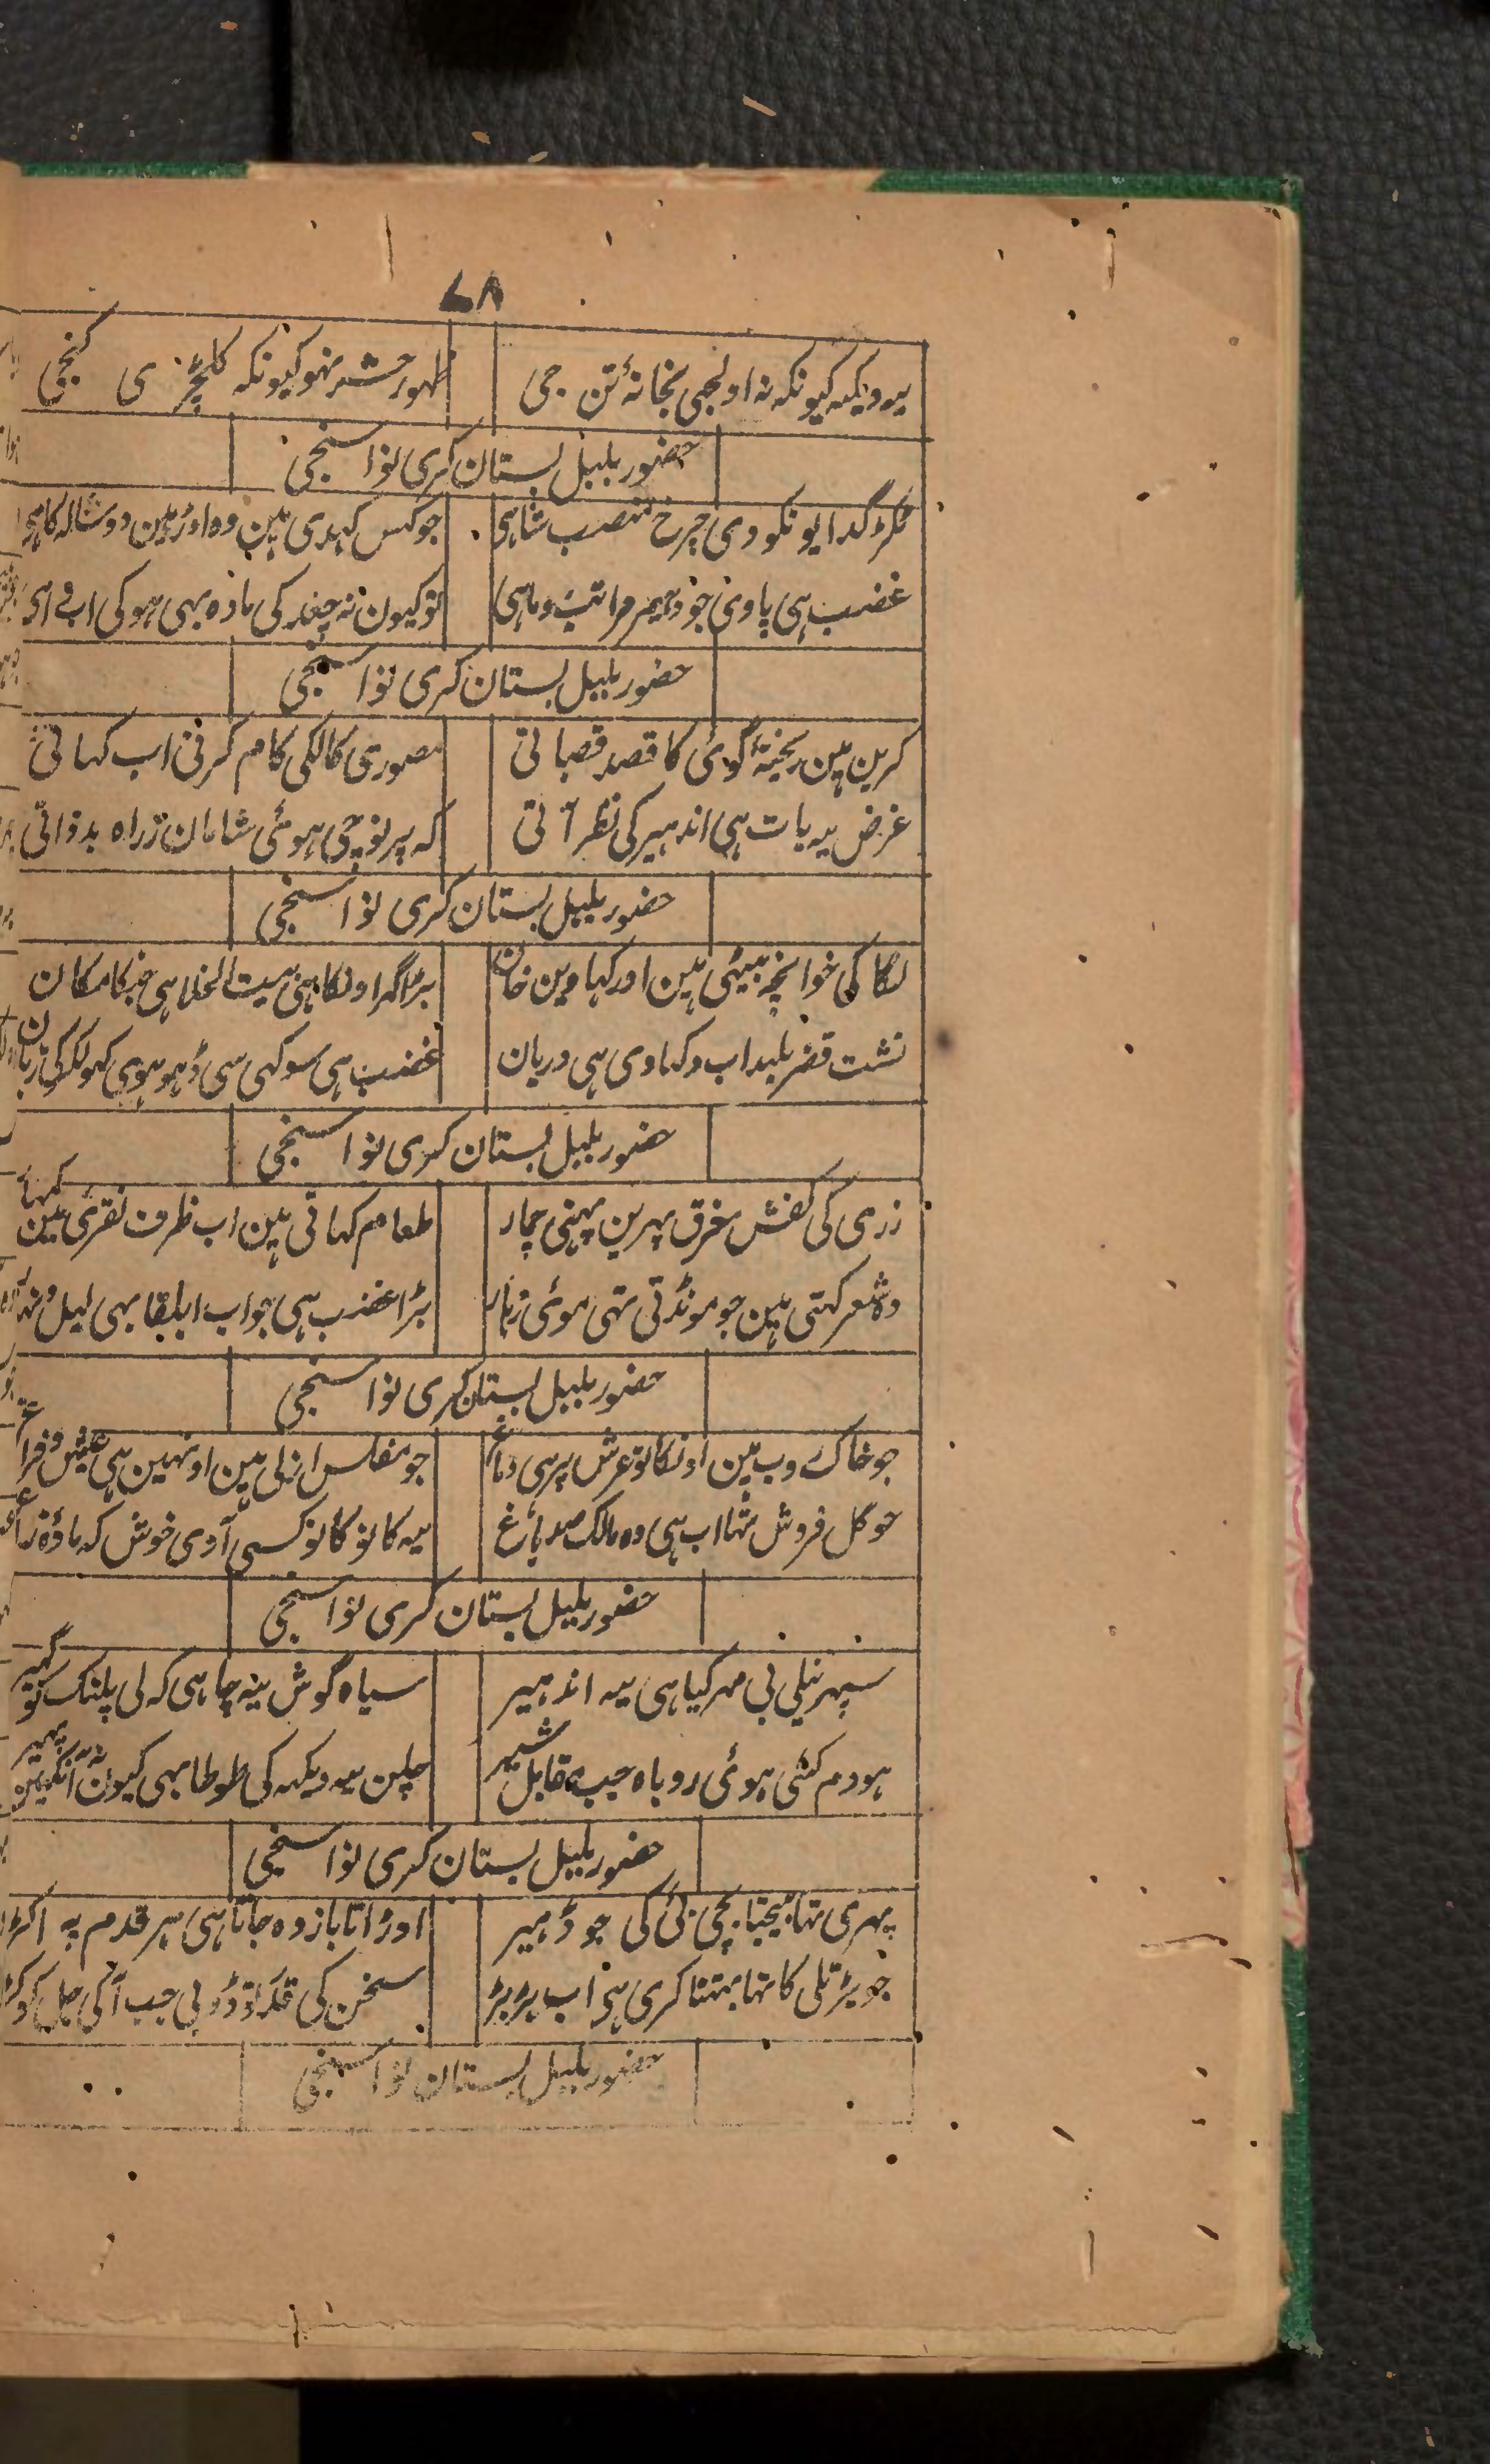 ٦٨
یہ دیکہ کیونکہ نہ اولجہی بخانۂ تن جی ظہور حشر نہو کیونکہ کلچڑی گنجی
حضور بلبل بستان کری نوا سنجی
گدایونکو دی چرخ منصب شاہی جو کس کہدی ہین وہ اوڑہین دوشالہ کاہی
غضب ہی پاوی خود بیر مراتب و ماہی تو کیون نہ چغد کی مادہ بہی ہو کی
حضور بلبل بستان کری نوا سنجی
کرین ہین ریختہ گوئی کا قصد قصباتی مصوری کا لگی کام کرنی اب کہاتی
غرض یہ بات ہی اندہیر کی نظر آتی کہ پر نوچی ہوئی شامان زراہ بدذاتی
حضور بلبل بستان کری نوا سنجی
لگا کی خوانچہ بیٹہی ہین اور کہاوین خان بڑا گہر اونکا ہی بیت الخلا ہی جنکا مکان
نشت قصر بلند اب دکہاوی ہی دربان غضب ہی سوکہی سی ڈہوہوی کہولکر کی زبان
حضور بلبل بستان کری نوا سنجی
زری کی کفش مغرق پہرین پہنی چمار طعام کہاتی ہین اب ظرف نقرئی مین کمہار
وہ شعر کہتی ہین جو مونڈتی تہی موئی زہار بڑا غضب ہی جو اب ابلقا بہی لیل و نہار
حضور بلبل بستان کری نوا سنجی
جو خاک روب ہین اونکا تو عرش پر ہی دماغ جو مفلس ازلی ہین اونہین ہی عیش و فراغ
جو گل فروش تہا اب ہی وہ مالک صد باغ یہ کانو کانو کسی آوی خوش کہ مادۂ زاغ
حضور بلبل بستان کری نوا سنجی
سپہر نیلی بی مہر کیا ہی یہ اندہیر سیاہ گوش یہ چاہی کہ لی پلنک کو گہیر
ہو دم کٹی ہوئی روباہ جب مقابل شیر چلن یہ دیکہہ کی طوطا بہی کیون نہ آنکہین پہیر
حضور بلبل بستان کری نوا سنجی
پہری تہا بیچتا بچی بئی کی جو ڈہیر اوڑاتا باز وہ جاتا ہی ہر قدم پہ اکڑ
جو بڑ تلی کا تہا بہتنا کری ہی اب بڑ بڑ سخن کی قدر تو ڈوبی جب آ کی
حضور بلبل بستان نوا سنجی